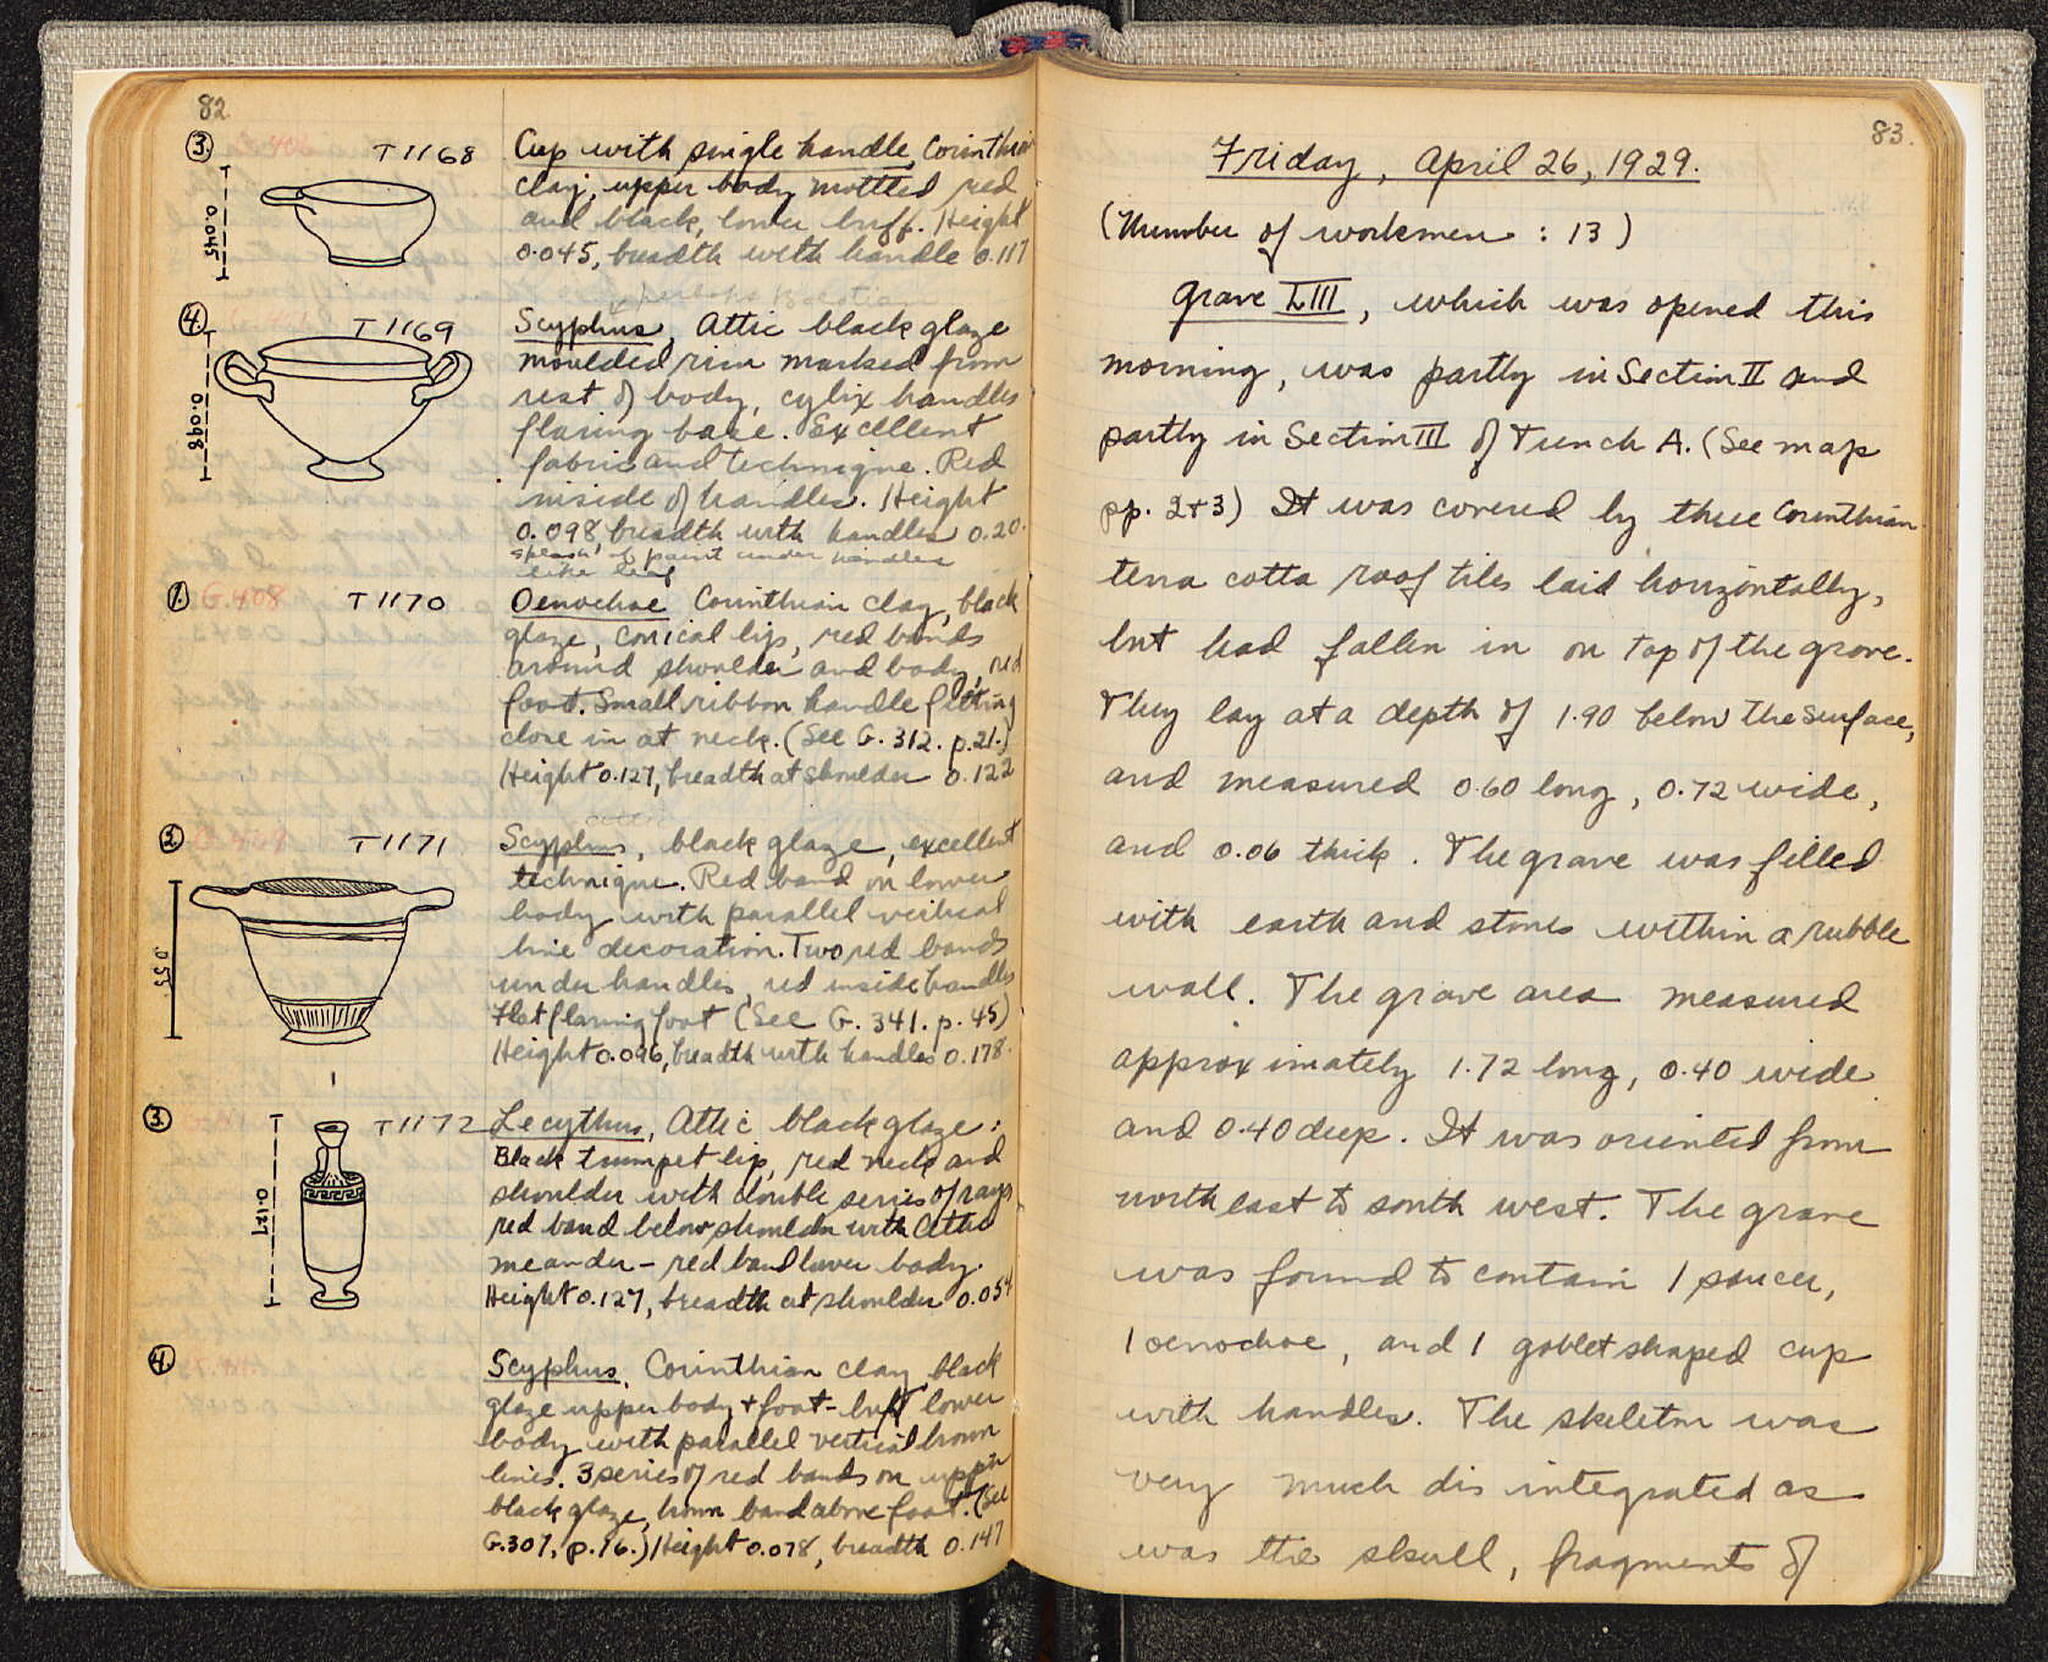 82
③ T1168 Cup with single handle, Corinthian
clay; upper body mottled red
and black, lower buff. Height
0.045, breadth with handle 0.117
0.045
perhaps Boeotian
④ T1169 Scyphus, Attic black glaze
moulded rim marked from
rest of body, cylix handles
flaring base. Excellent
fabric and technique. Red
inside of handles. Height
0.098, breadth with handles 0.20
splash of paint under handles
like leaf
0.098
①. G.408 T1170 Oenochoe Corinthian clay, black
glaze, conical lip, red bands
around shoulder and body, red
foot. Small ribbon handle fitting
close in at neck. (See G. 312. p.21.)
Height 0.127, breadth at shoulder 0.122
attic
②. G.409 T1171 Scyphus, black glaze, excellent
technique. Red band on lower
body with parallel vertical
line decoration. Two red bands
under handles, red inside handles
Flat flaring foot (See G. 341. p. 45)
Height 0.096, breadth with handles 0.178.
③. T1172 Lecythus, Attic black glaze:
Black trumpet lip, red neck and
shoulder with double series of rays
red band below shoulder with Attic
meander - red band lower body.
Height 0.127, breadth at shoulder 0.054
0.127
④. Scyphus, Corinthian clay, black
glaze upper body + foot - buff lower
body with parallel vertical brown
lines. 3 series of red bands on upper
black glaze, brown band above foot. (See
G.307, p.16.) Height 0.078, breadth 0.147
83.
Friday, April 26, 1929.
(Number of workmen : 13)
Grave LIII, which was opened this
morning, was partly in Section II and
partly in Section III of Trench A. (See map
pp. 2+3) It was covered by three Corinthian
terra cotta roof tiles laid horizontally,
but had fallen in on top of the grave.
They lay at a depth of 1.90 below the surface,
and measured 0.60 long, 0.72 wide,
and 0.06 thick. The grave was filled
with earth and stones within a rubble
wall. The grave area measured
approximately 1.72 long, 0.40 wide
and 0.40 deep. It was oriented from
north east to south west. The grave
was found to contain 1 saucer,
1 oenochoe, and 1 goblet shaped cup
with handles. The skeleton was
very much disintegrated as
was the skull, fragments of